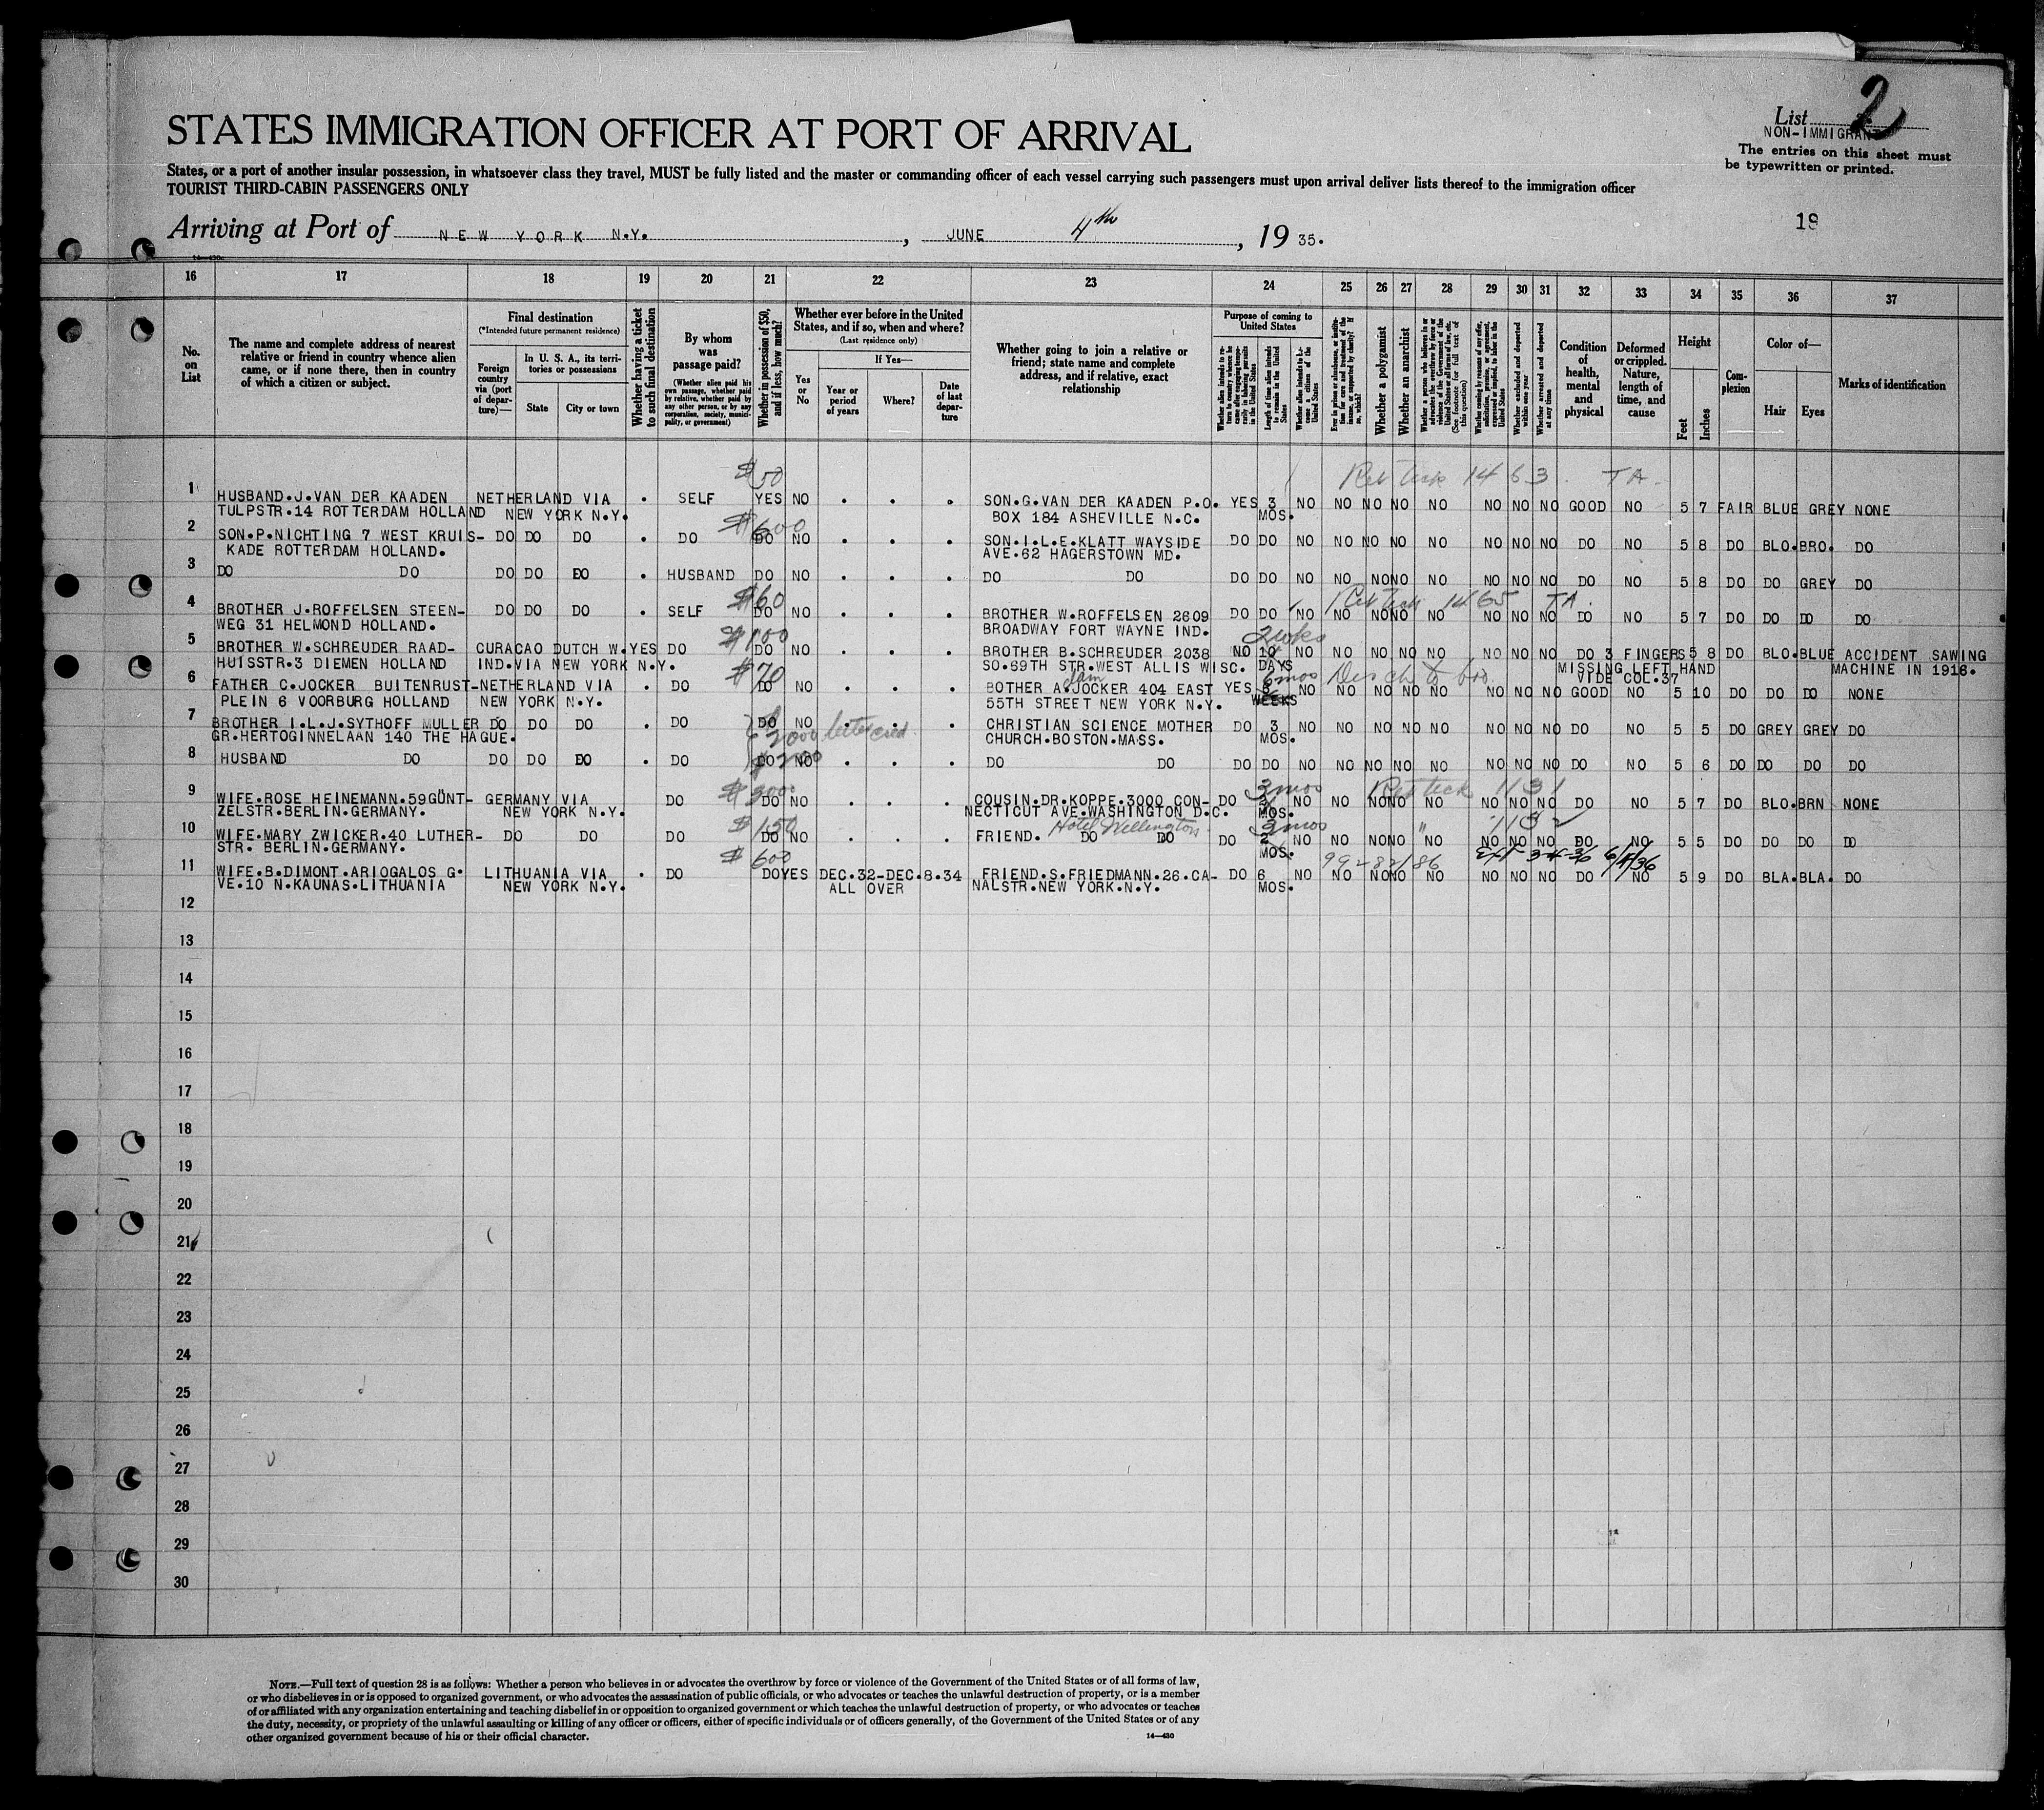 List 2
NON-IMMIGRANT
The entries on this sheet must
be typewritten or printed.
STATES IMMIGRATION OFFICER AT PORT OF ARRIVAL
States, or a port of another insular possession, in whatsoever class they travel, MUST be fully listed and the master or commanding officer of each vessel carrying such passengers must upon arrival deliver lists thereof to the immigration officer
TOURIST THIRD-CABIN PASSENGERS ONLY
Arriving at Port of NEW YORK N.Y., JUNE 4th, 19 35.
19
16 17 18 19 20 21 22 23 24 25 26 27 28 29 30 31 32 33 34 35 36 37
No. on List
The name and complete address of nearest relative or friend in country whence alien came, or if none there, then in country of which a citizen or subject.
Final destination
(*Intended future permanent residence)
Foreign country via (port of departure)—
In U. S. A., its territories or possessions
State
City or town
Whether having a ticket to such final destination
By whom was passage paid?
(Whether alien paid his own passage, whether paid by relative, whether paid by any other person, or by any corporation, society, municipality, or government)
Whether in possession of $50, and if less, how much?
Whether ever before in the United States, and if so, when and where?
(Last residence only)
If Yes—
Yes or No
Year or period of years
Where?
Date of last departure
Whether going to join a relative or friend; state name and complete address, and if relative, exact relationship
Purpose of coming to United States
Length of time alien intends to remain in the United States
Whether alien intends to become a citizen of the United States
Whether a polygamist
Whether an anarchist
Whether excluded and deported within one year
Whether arrested and deported at any time
Condition of health, mental and physical
Deformed or crippled. Nature, length of time, and cause
Height
Feet
Inches
Complexion
Color of—
Hair
Eyes
Marks of identification
$50 Ret Tick 1463 TA.
1 HUSBAND.J.VAN DER KAADEN NETHERLAND VIA . SELF YES NO . . . SON.G.VAN DER KAADEN P.O. YES 3 NO NO NO NO NO NO NO NO GOOD NO 5 7 FAIR BLUE GREY NONE
TULPSTR.14 ROTTERDAM HOLLAND NEW YORK N.Y. BOX 184 ASHEVILLE N.C. MOS.
$600
2 SON.P.NICHTING 7 WEST KRUIS- DO DO DO . DO DO NO . . . SON.I.L.E.KLATT WAYSIDE DO DO NO NO NO NO NO NO NO NO DO NO 5 8 DO BLO.BRO. DO
KADE ROTTERDAM HOLLAND. AVE.62 HAGERSTOWN MD.
3 DO DO DO DO DO . HUSBAND DO NO . . . DO DO DO DO NO NO NO NO NO NO NO NO DO NO 5 8 DO DO GREY DO
$60 Ret Tick 1465 TA.
4 BROTHER J.ROFFELSEN STEEN- DO DO DO . SELF DO NO . . . BROTHER W.ROFFELSEN 2609 DO DO NO NO NO NO NO NO NO NO DO NO 5 7 DO DO DO DO
WEG 31 HELMOND HOLLAND. BROADWAY FORT WAYNE IND.
$100 2 wks
5 BROTHER W.SCHREUDER RAAD- CURACAO DUTCH W. YES DO DO NO . . BROTHER B.SCHREUDER 2038 NO 10 NO NO NO NO NO NO NO NO DO 3 FINGERS 5 8 DO BLO.BLUE ACCIDENT SAWING
HUISSTR.3 DIEMEN HOLLAND IND.VIA NEW YORK N.Y. SO.69TH STR.WEST ALLIS WISC. DAYS MISSING LEFT HAND MACHINE IN 1916.
VIDE COL.37
$70 6 mos
6 FATHER C.JOCKER BUITENRUST- NETHERLAND VIA . DO DO NO . . . BOTHER A.JOCKER 404 EAST YES 6 NO NO NO NO NO NO NO NO GOOD NO 5 10 DO DO DO NONE
PLEIN 6 VOORBURG HOLLAND NEW YORK N.Y. 55TH STREET NEW YORK N.Y. WEEKS
7 BROTHER I.L.J.SYTHOFF MULLER DO DO DO . DO DO NO . . . CHRISTIAN SCIENCE MOTHER DO 3 NO NO NO NO NO NO NO NO DO NO 5 5 DO GREY GREY DO
GR.HERTOGINNELAAN 140 THE HAGUE. 2000 letter cred. CHURCH.BOSTON.MASS. MOS.
8 HUSBAND DO DO DO DO . DO DO NO . . . DO DO DO DO NO NO NO NO NO NO NO NO DO NO 5 6 DO DO DO DO
3 mos Ret tick 1131
9 WIFE.ROSE HEINEMANN.59GÜNT- GERMANY VIA DO DO NO . . . COUSIN.DR.KOPPE.3000 CON- DO NO NO NO NO NO NO NO NO DO NO 5 7 DO BLO.BRN NONE
ZELSTR.BERLIN.GERMANY. NEW YORK N.Y. NECTICUT AVE.WASHINGTON D.C. MOS.
$150 Hotel Wellington 3 mos " 1132
10 WIFE.MARY ZWICKER.40 LUTHER- DO DO DO DO NO . . . FRIEND. DO DO DO 2 NO NO NO NO NO NO NO NO DO NO 5 5 DO DO DO DO
STR. BERLIN.GERMANY. MOS.
$600 99282/86 Ext 3-4-36 6/4/36
11 WIFE.B.DIMONT.ARIOGALOS G. LITHUANIA VIA . DO DO YES DEC.32-DEC.8.34 FRIEND.S.FRIEDMANN.26.CA- DO 6 NO NO NO NO NO NO NO NO DO NO 5 9 DO BLA.BLA. DO
VE.10 N.KAUNAS.LITHUANIA NEW YORK N.Y. ALL OVER NALSTR.NEW YORK.N.Y. MOS.
12
13
14
15
16
17
18
19
20
21
22
23
24
25
26
27
28
29
30
NOTE.—Full text of question 28 is as follows: Whether a person who believes in or advocates the overthrow by force or violence of the Government of the United States or of all forms of law,
or who disbelieves in or is opposed to organized government, or who advocates the assassination of public officials, or who advocates or teaches the unlawful destruction of property, or is a member
of or affiliated with any organization entertaining and teaching disbelief in or opposition to organized government or which teaches the unlawful destruction of property, or who advocates or teaches
the duty, necessity, or propriety of the unlawful assaulting or killing of any officer or officers, either of specific individuals or of officers generally, of the Government of the United States or of any
other organized government because of his or their official character.
14—430